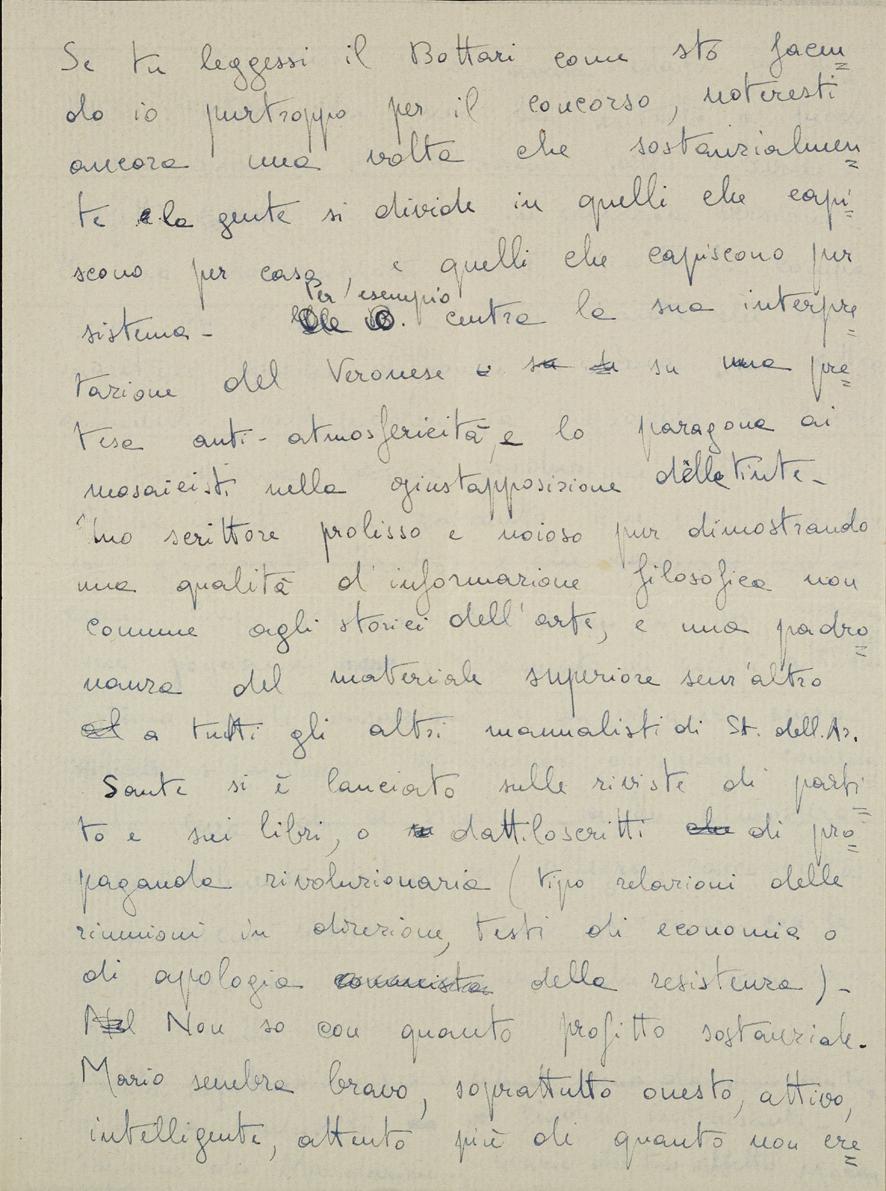 Se tu leggessi il Bottari come stò facen=
do io purtroppo per il concorso, noteresti
ancora una volta che sostanzialmen=
te la gente si divide in quelli che capi=
scono per caso, e quelli che capiscono per
Per esempio
sistema - centra la sua interpre=
tazione del Veronese su una pre=
tesa anti-atmosfericità, e lo paragona ai
mosaicisti nella giustapposizione delle tinte -
Uno scrittore prolisso e noioso pur dimostrando
una qualità d'informazione filosofica non
comune agli storici dell'arte, e una padro=
nanza del materiale superiore senz'altro
a tutti gli altri manualisti di St. dell.Ar.
Sante si è lanciato sulle riviste di parti=
to e sui libri, o dattiloscritti di pro=
paganda rivoluzionaria (tipo relazioni delle
riunioni in direzione, testi di economia o
di apologia della resistenza) -
Non so con quanto profitto sostanziale.
Mario sembra bravo, soprattutto onesto, attivo,
intelligente, attento più di quanto non cre=